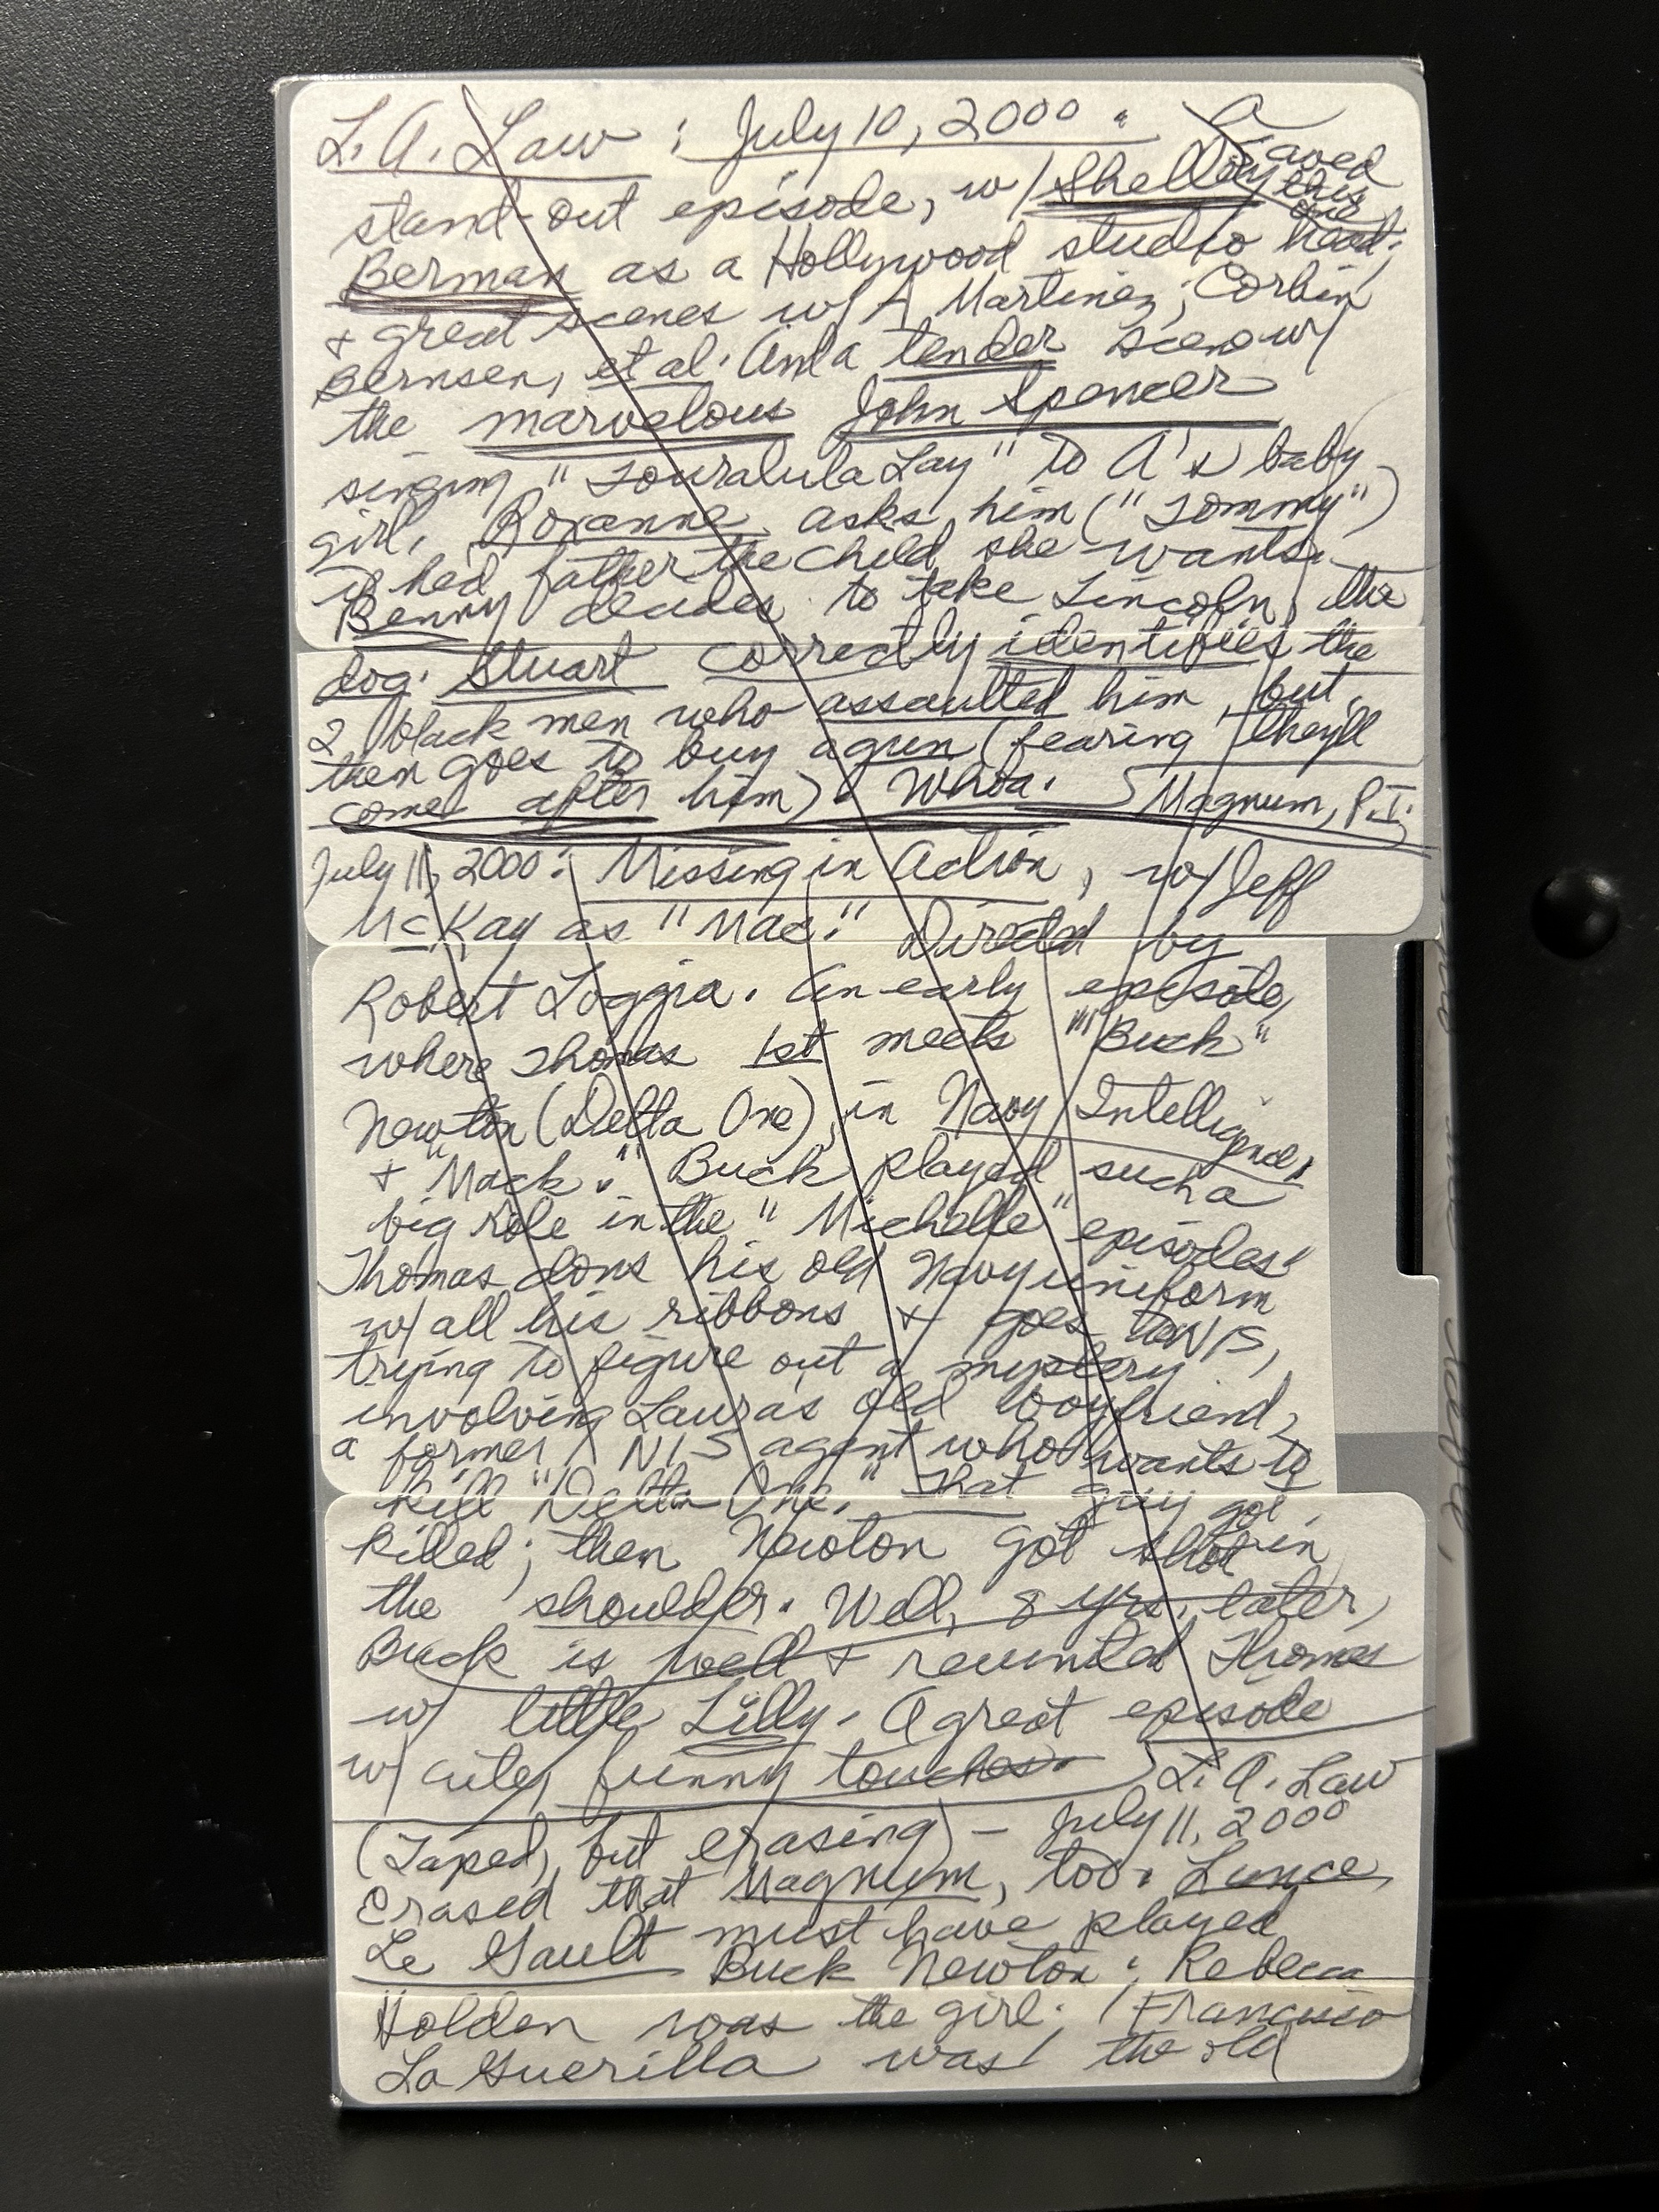 L.A. Law : July 10, 2000 : A
stand-out episode, w/ Shelley
Saved this one
Berman as a Hollywood studio head;
+ great scenes w/ A Martinez, Corbin
Bernsen, et al. And a tender scene w/
the marvelous John Spencer
singing "Touralula Lay" to A's baby
girl. Roxanne asks him ("Tommy")
if he'd father the child she wants.
Benny decides to take Lincoln, the
dog. Stuart correctly identifies the
2 black men who assaulted him, but
then goes to buy a gun (fearing they'll
come after him). Whoa.
Magnum, P.I.
July 11, 2000: Missing in Action, w/ Jeff
McKay as "Mac." Directed by
Robert Loggia. An early episode,
where Thomas 1st meets "Buck"
Newton (Delta One), in Navy Intelligence,
+ "Mack." Buck played such a
big role in the "Michelle" episodes!
Thomas dons his old Navy uniform
w/ all his ribbons + goes to NIS,
trying to figure out a mystery
involving Laura's old boyfriend,
a former NIS agent who wants to
kill "Delta One." That guy got
killed; then Newton got shot in
the shoulder. Well, 8 yrs. later,
Buck is well + reunited Thomas
w/ little Lilly. A great episode
w/ cute, funny touches.
L.A. Law
(Taped, but erasing) – July 11, 2000
Erased that Magnum, too. Lance
Le Gault must have played
Buck Newton; Rebecca
Holden was the girl. Francisco
La Guerilla was the old